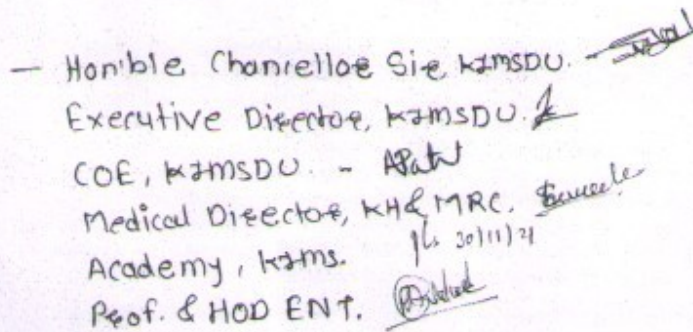 — Hon'ble Chancelloe Sir, KIMSDU. -
Executive Director, KIMSDU.
COE, KIMSDU. - APatil
Medical Director, KH & MRC.
Academy, KIMS. 30/11/21
Prof. & HOD ENT.